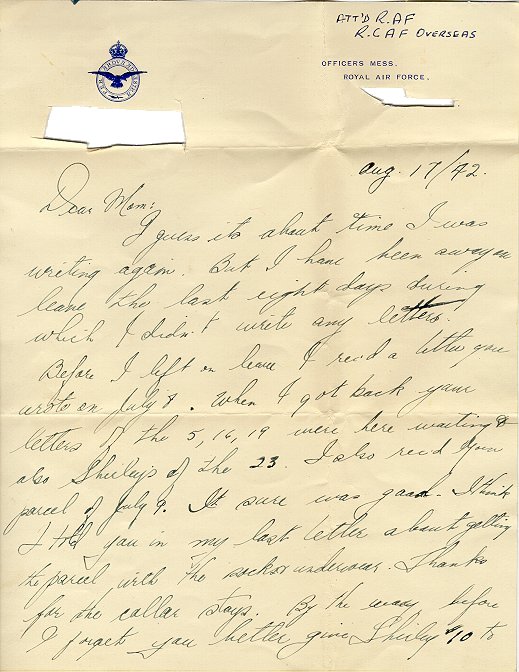 ATT'D R.AF
R.CAF OVERSEAS
OFFICERS MESS.
ROYAL AIR FORCE.
PER ARDVA AD ASTRA
Aug. 17/42.
Dear Mom:
I guess its about time I was
writing again. But I have been away on
leave the last eight days during
which I didn't write any letters.
Before I left on leave I rec'd a letter you
wrote on July 8. When I got back your
letters of the 5, 16, 19 were here waiting &
also Shirley's of the 23. I also rec'd your
parcel of July 9. It sure was good. I think
I told you in my last letter about getting
the parcel with the socks & underwear. Thanks
for the collar stays. By the way before
I forget you better give Shirley $10 to